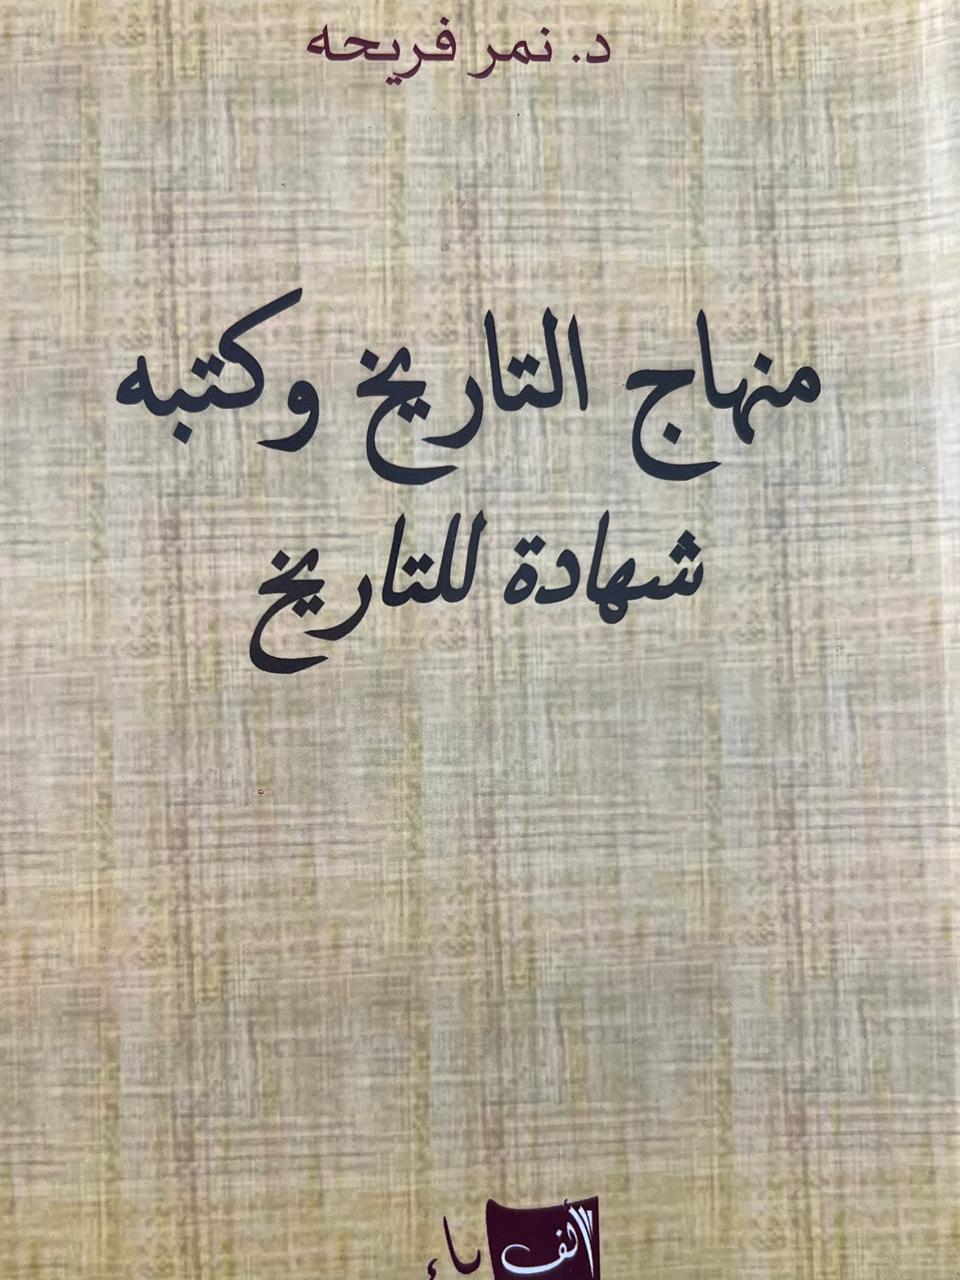 د. نمر فريحه
منهاج التاريخ وكتبه
شهادة للتاريخ
ألف باء